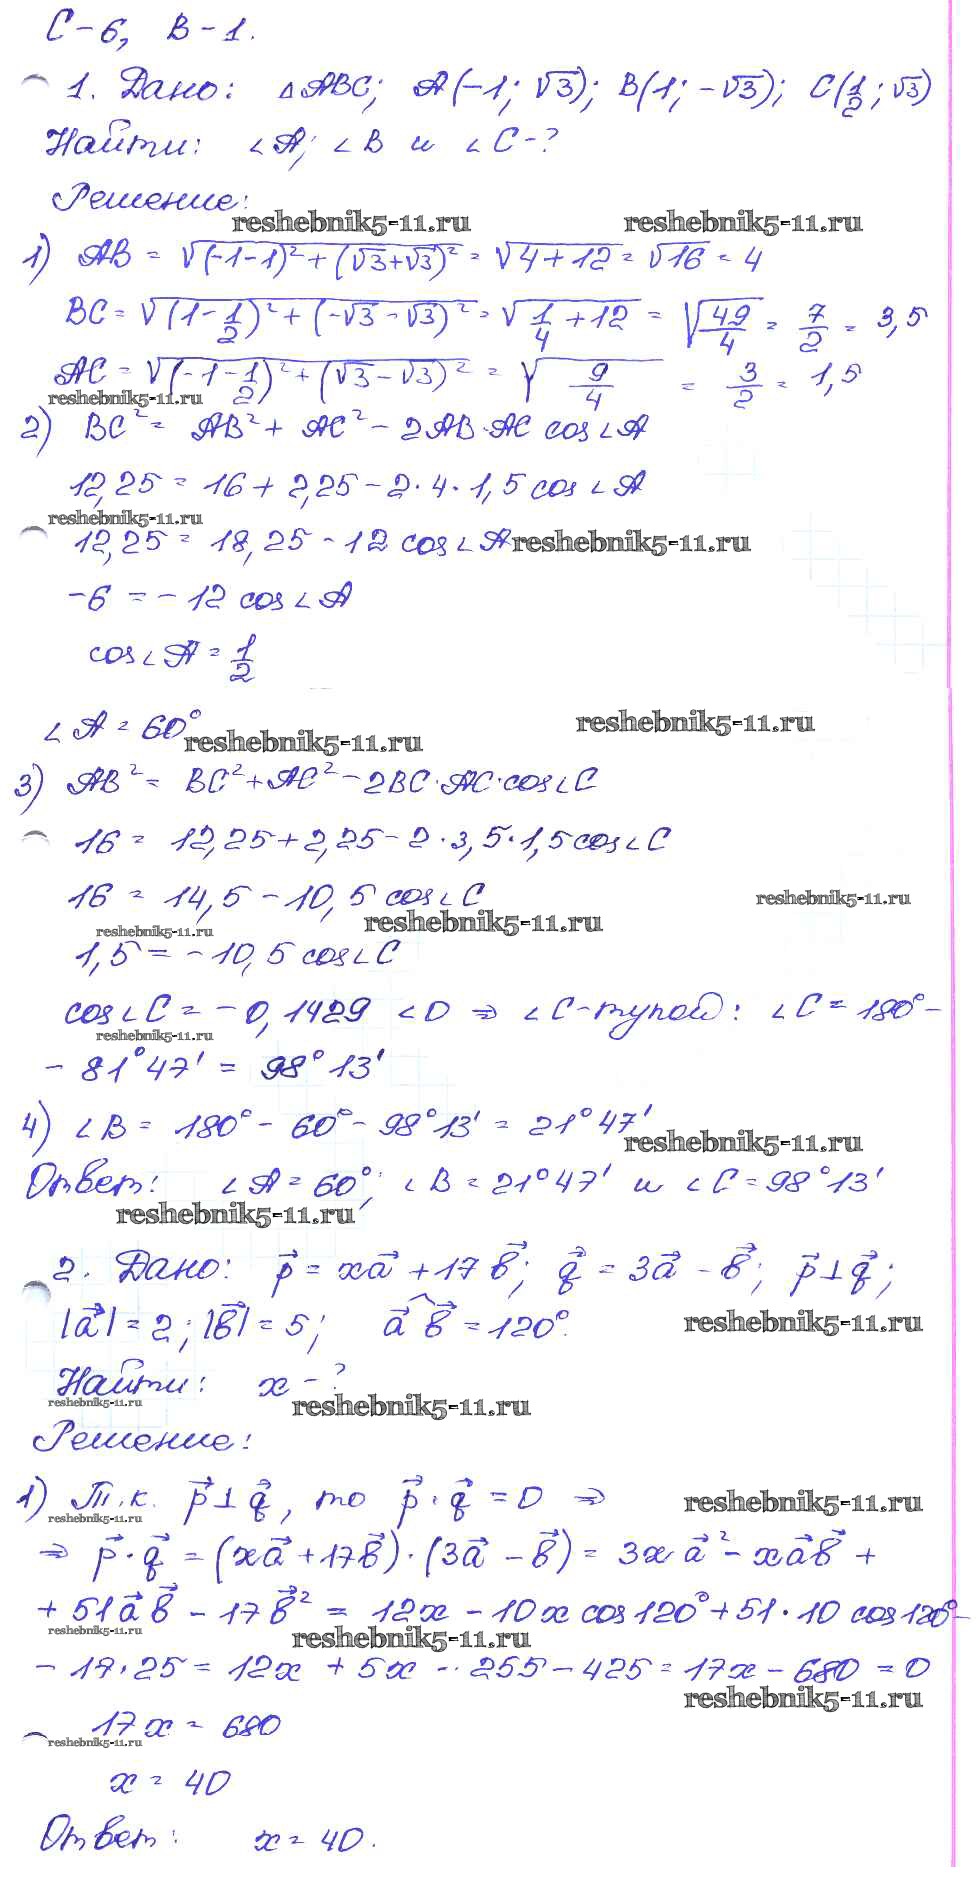 С-6, В-1.
1. Дано: △ABC; A(-1; √3); B(1; -√3); C(1/2; √3)
Найти: ∠A; ∠B и ∠C-?
Решение:
reshebnik5-11.ru reshebnik5-11.ru
1) AB = √(-1-1)² + (√3+√3)² = √4+12 = √16 = 4
BC = √(1-1/2)² + (-√3-√3)² = √1/4+12 = √49/4 = 7/2 = 3,5
AC = √(-1-1/2)² + (√3-√3)² = √9/4 = 3/2 = 1,5
reshebnik5-11.ru
2) BC² = AB² + AC² - 2AB·AC cos∠A
12,25 = 16 + 2,25 - 2·4·1,5 cos∠A
reshebnik5-11.ru
12,25 = 18,25 - 12 cos∠A reshebnik5-11.ru
-6 = -12 cos∠A
cos∠A = 1/2
∠A = 60° reshebnik5-11.ru
reshebnik5-11.ru
3) AB² = BC² + AC² - 2BC·AC·cos∠C
16 = 12,25 + 2,25 - 2·3,5·1,5 cos∠C
16 = 14,5 - 10,5 cos∠C reshebnik5-11.ru
reshebnik5-11.ru reshebnik5-11.ru
1,5 = -10,5 cos∠C
cos∠C = -0,1429 <0 ⇒ ∠C-тупой: ∠C = 180° -
reshebnik5-11.ru
- 81°47' = 98°13'
4) ∠B = 180° - 60° - 98°13' = 21°47'
reshebnik5-11.ru
Ответ: ∠A = 60°; ∠B = 21°47' и ∠C = 98°13'
reshebnik5-11.ru
2. Дано: p⃗ = xa⃗ + 17b⃗; q⃗ = 3a⃗ - b⃗; p⃗⊥q⃗;
|a⃗| = 2; |b⃗| = 5; a⃗ b⃗ = 120°. reshebnik5-11.ru
Найти: x-?
reshebnik5-11.ru reshebnik5-11.ru
Решение:
1) Т.к. p⃗⊥q⃗, то p⃗·q⃗ = 0 ⇒ reshebnik5-11.ru
reshebnik5-11.ru
⇒ p⃗·q⃗ = (xa⃗ + 17b⃗)·(3a⃗ - b⃗) = 3xa⃗² - xa⃗b⃗ +
+ 51a⃗b⃗ - 17b⃗² = 12x - 10x cos120° + 51·10 cos120° -
reshebnik5-11.ru reshebnik5-11.ru
- 17·25 = 12x + 5x - 255 - 425 = 17x - 680 = 0
reshebnik5-11.ru
17x = 680
reshebnik5-11.ru
x = 40
Ответ: x = 40.